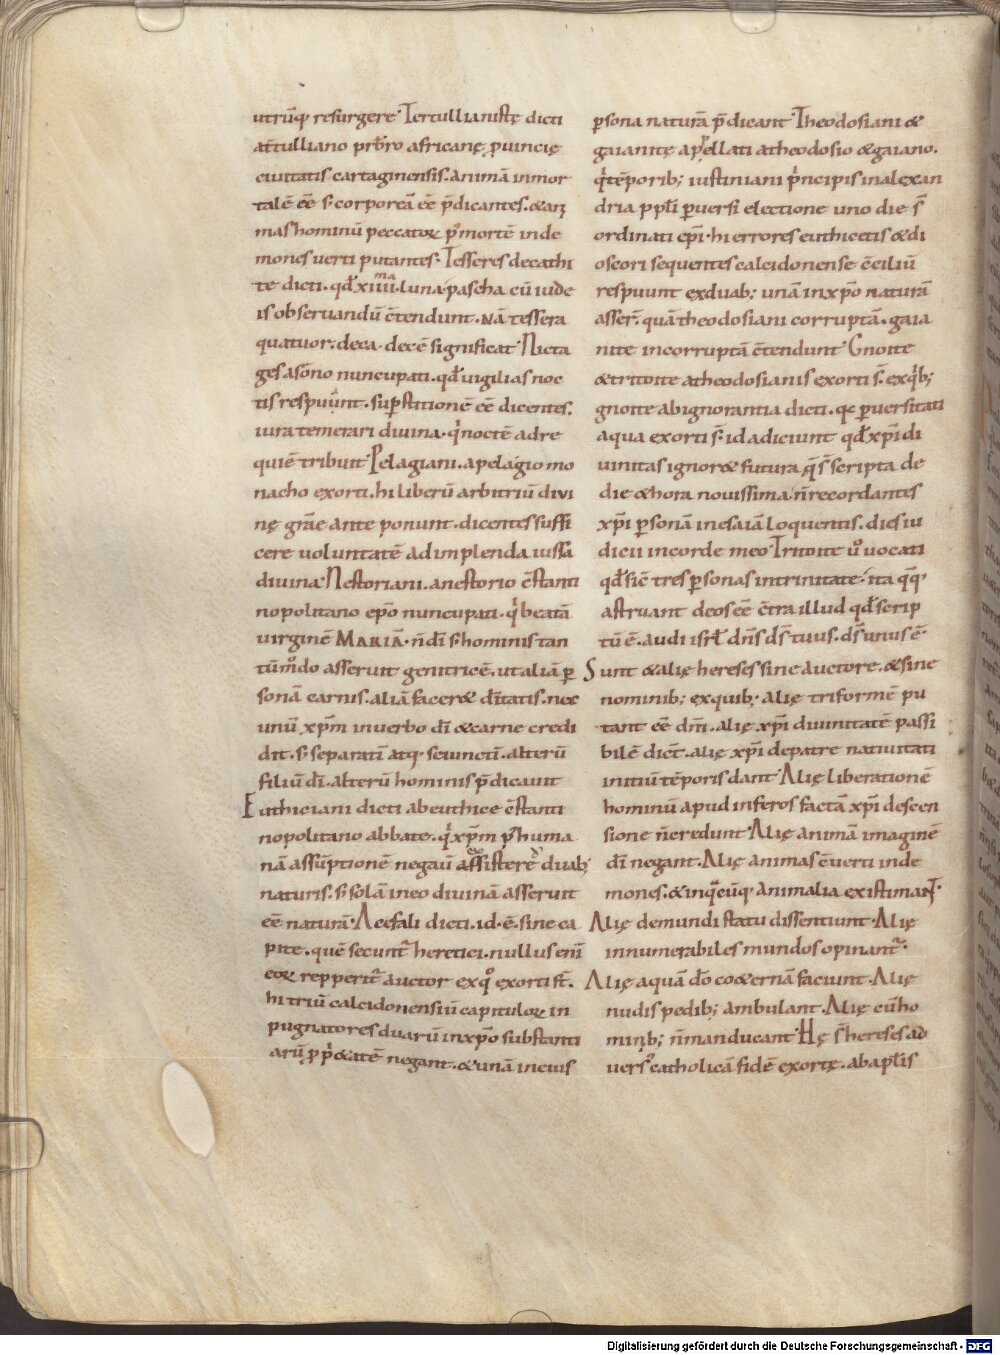 utrūq resurgere. Tertullianistę dicti
atertulliano prb̄ro africanę puincię
ciuitatis cartaginensis. animā inmor
talē eē s; corporeā eē p̄dicantes. & ani
mas hominū peccatoꝝ p̄ mortē inde
mones uerti putantes. Tesseres decathi
te dicti. qđ xiiii.ma luna pascha cū iude
is obseruandū c̄tendunt. NĀ tessera
quatuor. deca. decē significat. Nicta
ges asōno nuncupati. qđ uigilias noc
tis respuunt. supstitionē eē dicentes.
iura temerari diuina. qͥ noctē ad re
quiē tribuit. Pelagiani. apelagio mo
nacho exorti. hi liberū arbitriū diui
nę grāe ante ponunt. dicentes suffi
cere uoluntatē adimplenda iussa
diuina. Nestoriani. anestorio c̄stanti
nopolitano ep̄o nuncupati. qͥ beatā
uirginē MARIĀ. n̄ dī s; hominis tan
tūm̊do asserunt genitricē. ut aliā per
sonā carnis. aliā facer& dētatis. nec
unū xp̄m in uerbo dī & carne credi
dit. s; separatī atq; seiunctī. alterū
filiū dī. alterū hominis p̄dicauit.
Euthiciani dicti abeuthice c̄stanti
nopolitano abbate. qͥ xp̄m p̄ huma
nā assūptionē negau̅ exsistere duab;
naturis. s; solā in eo diuinā asserunt
eē naturā. Acefali dicti. id. ē. sine ca
pite. quē secunt̄ heretici. nullus enī
eoꝝ repperit̄ auctor ex qͦ exorti st̄.
hi triū calcidonensiū capituloꝝ in
pugnatores duarū in xp̄o substanti
arū p p̄ͥ&atē negant. & unā in eius
psona naturā p̄dicant. Theodosiani &
gaianitę appellati atheodosio & gaiano.
qͥ tēporib; iustiniani pͥncipis in alexan
dria ppłi puersi electione uno die s̄
ordinati ep̄i. hi errores euthicetis & di
oscori sequentes calcidonense c̄ciliū
respuunt ex duab; unā in xp̄o naturā
asser̄. quā theodosiani corruptā. gaia
nite incorruptā c̄tendunt. Gnoite
& tritoite atheodosianis exorti s̄. ex qͥb;
gnoite abignorantia dicti. qͥ puersitati
a qua exorti s̄. id adiciunt qđ xp̄i di
uinitas ignor& futura. q̄ s̄ scripta de
die & hora nouissima. n̄ recordantes
xp̄i psonā in esaiā loquentis. dies iu
dicii in corde meo. Tritoite ů uocati
qđ sic̄ tres psonas in trinitate. ita q̄q;
astruant deos eē c̄tra illud qđ scrip
tū ē. audi isrł dn̄s ds̄ tuus. ds̄ unus ē.
Sunt & alię hereses sine auctore. & sine
nominib; ex quib; alię triformē pu
tant eē dm̄. alię xp̄i diuinitatē passi
bilē dic̄t. alię xp̄i de patre natiuitati
initiū tēporis dant. Alię liberationē
hominū apud inferos factā xp̄i descen
sione n̄ credunt. Alię animā imaginē
dī negant. Alię animas c̄uerti in de
mones. & in q̄cūq; animalia existimant.
Alię de mundi statu dissentiunt. Alię
innumerabiles mundos opinant̄.
Alię aquā dō co&ernā faciunt. Alię
nudis pedib; ambulant. Alię cū ho
minib; n̄ manducant. Hę s̄ hereses. ad
uers̓ catholicā fidē exortę. ab apłis